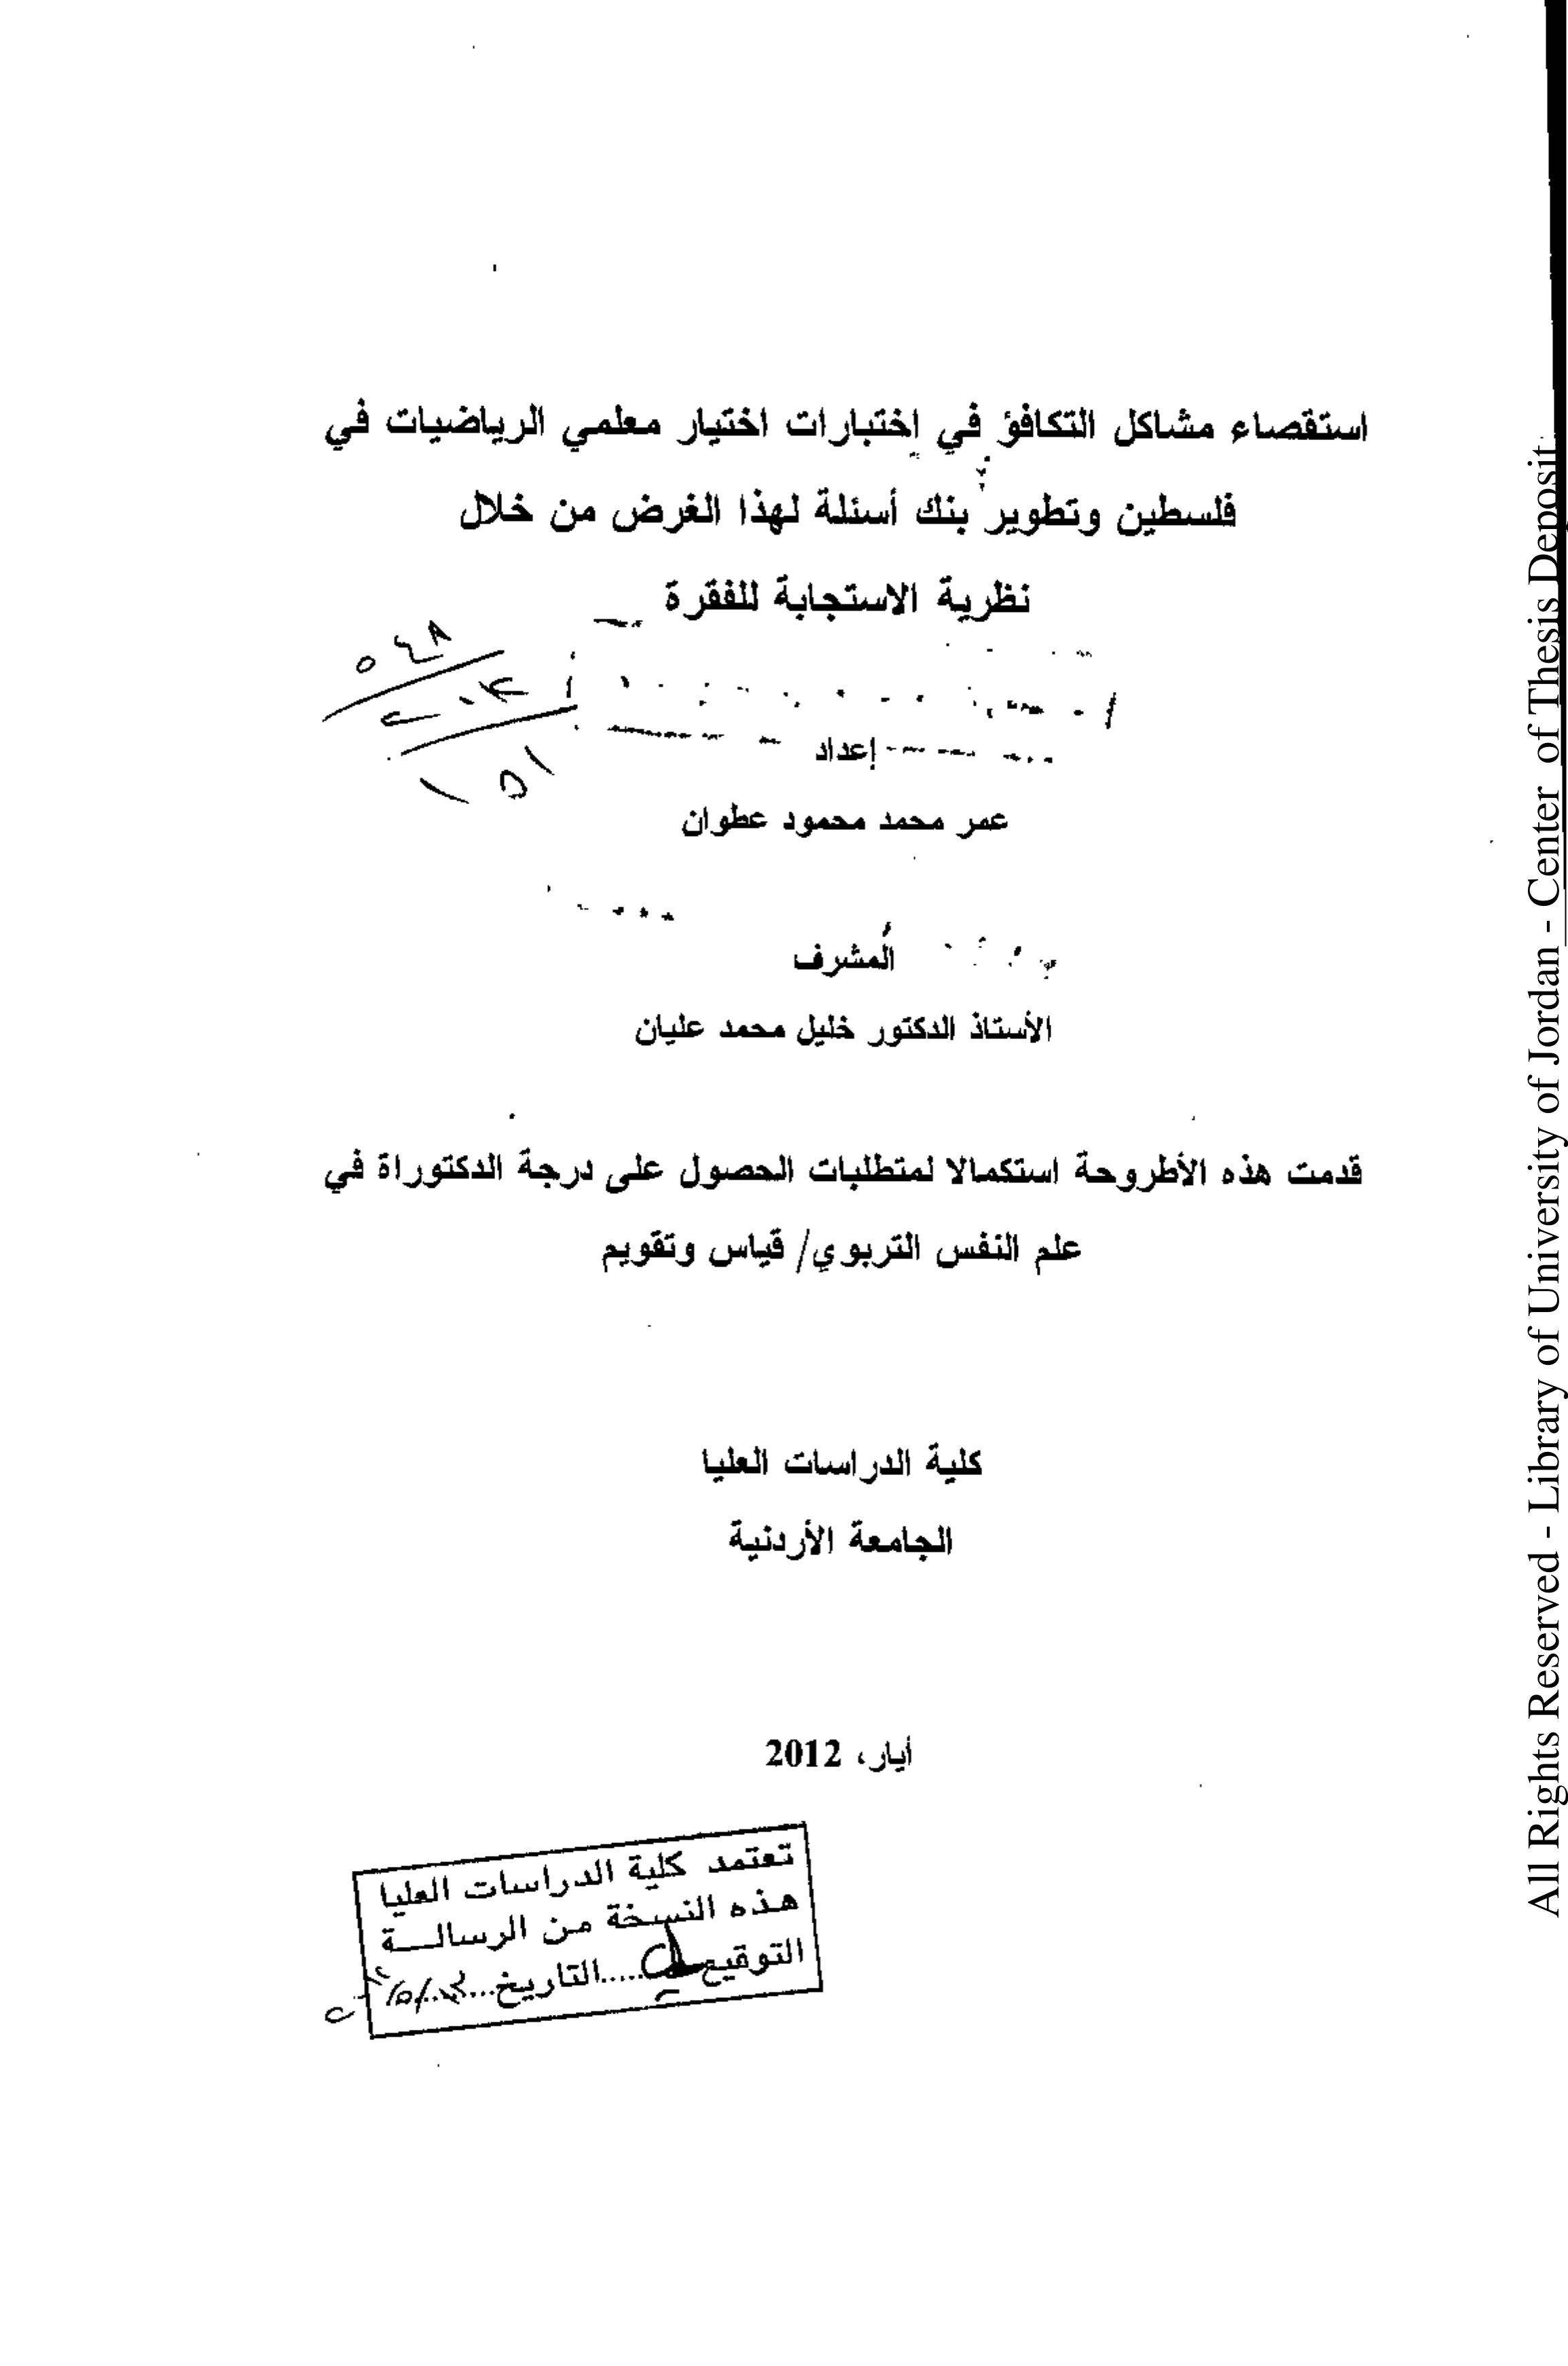 استقصاء مشاكل التكافؤ في إختبارات اختيار معلمي الرياضيات في
فلسطين وتطوير بنك أسئلة لهذا الغرض من خلال
نظرية الاستجابة للفقرة
٥٤٨
إعداد
عمر محمد محمود عطوان
المشرف
الأستاذ الدكتور خليل محمد عليان
قدمت هذه الأطروحة استكمالا لمتطلبات الحصول على درجة الدكتوراة في
علم النفس التربوي/ قياس وتقويم
كلية الدراسات العليا
الجامعة الأردنية
أيار، 2012
تعتمد كلية الدراسات العليا
هذه النسخة من الرسالـــة
التوقيع.....التاريخ...
All Rights Reserved - Library of University of Jordan - Center of Thesis Deposit